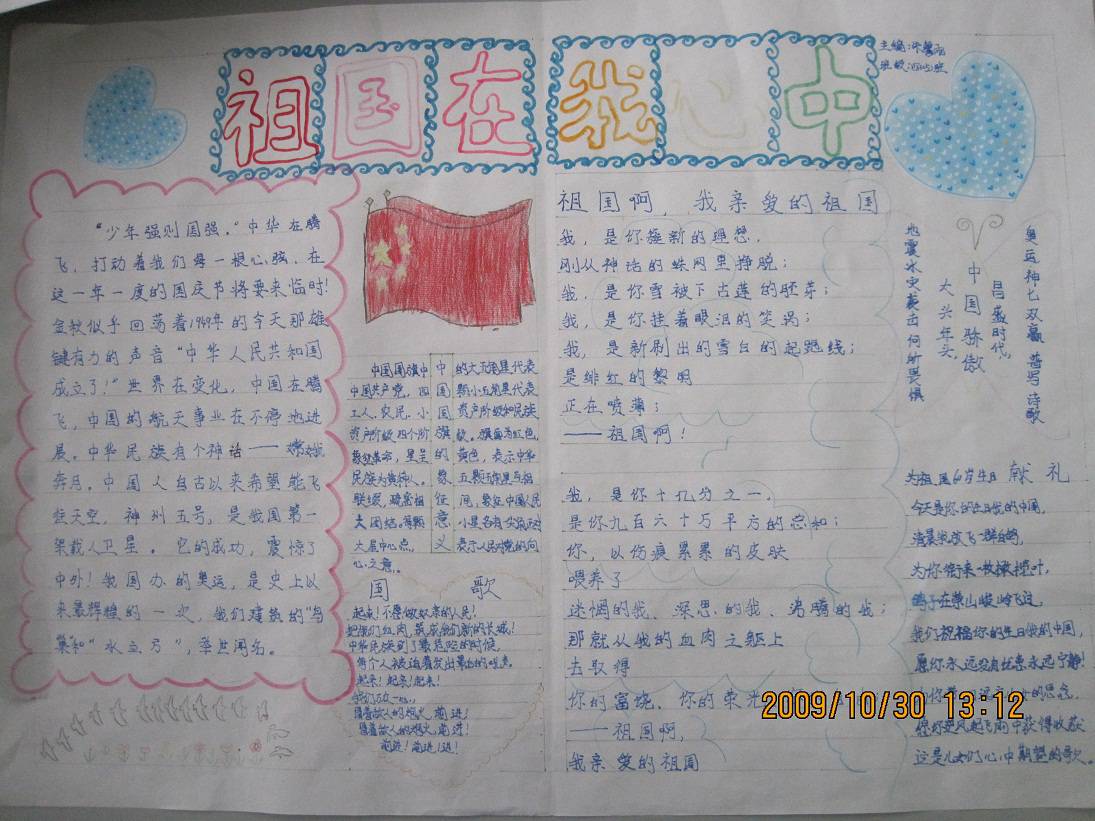 祖国在我心中
主编:
班级:
“少年强则国强。”中华在腾
飞,打动着我们每一根心弦,在
这一年一度的国庆节将要来临时!
念教似乎回荡着1949年的今天那雄
键有力的声音“中华人民共和国
成立了!”世界在变化,中国在腾
飞,中国的航天事业在不停地进
展。中华民族有个神话——嫦娥
奔月。中国人自古以来希望能飞
往天空,神州五号,是我国第一
架载人卫星。它的成功,震惊了
中外!我国办的奥运,是史上以
来最辉煌的一次,我们建筑的“鸟
巢和“水立方”,举世闻名。
中国国旗的象征意义
中国国旗中
中国共产党,四
工人、农民、小
资产阶级四个阶
象征革命,星呈
民族为黄种人。
联缀,疏密相
大团结。每颗
大星中心点。
心之意。
的大五角星代表
颗小五角星代表
资产阶级和民族
级。旗面为红色,
黄色,表示中华
五颗五角星互相
间,象征中国人民
小星各有一尖角
表示人民对党的向
国歌
起来!不愿做奴隶的人民!
把我们血肉,筑成我们新的长城!
中华民族到了最危险的时候,
每个人被迫着发出最后的吼声。
起来!起来!起来!
我们万众一心,
冒着敌人的炮火,前进!
冒着敌人的炮火,前进!
前进!前进!进!
祖国啊,我亲爱的祖国
我,是你簇新的理想,
刚从神话的蛛网里挣脱;
我,是你雪被下古莲的胚芽;
我,是你挂着眼泪的笑涡;
我,是新刷出的雪白的起跑线;
是绯红的黎明
正在喷薄;
——祖国啊!
我,是你十亿分之一,
是你九百六十万平方的总和;
你,以伤痕累累的皮肤
喂养了
迷惘的我、深思的我、沸腾的我;
那就从我的血肉之躯上
去取得
你们富饶、你的荣光
——祖国啊,
我亲爱的祖国
奥运神七双赢普写诗歌
昌盛时代,
中国骄傲
大兴年头,
地震冰灾袭击何所畏惧
为祖国60岁生日献礼
今天是你的生日我的中国,
清晨我放飞一群白鸽,
为你衔来一枚橄榄叶,
鸽子在崇山峻岭飞过,
我们祝福你的生日我的中国,
愿你永远没有忧患永远宁静!
这是儿女们心中期望的歌。
2009/10/30 13:12